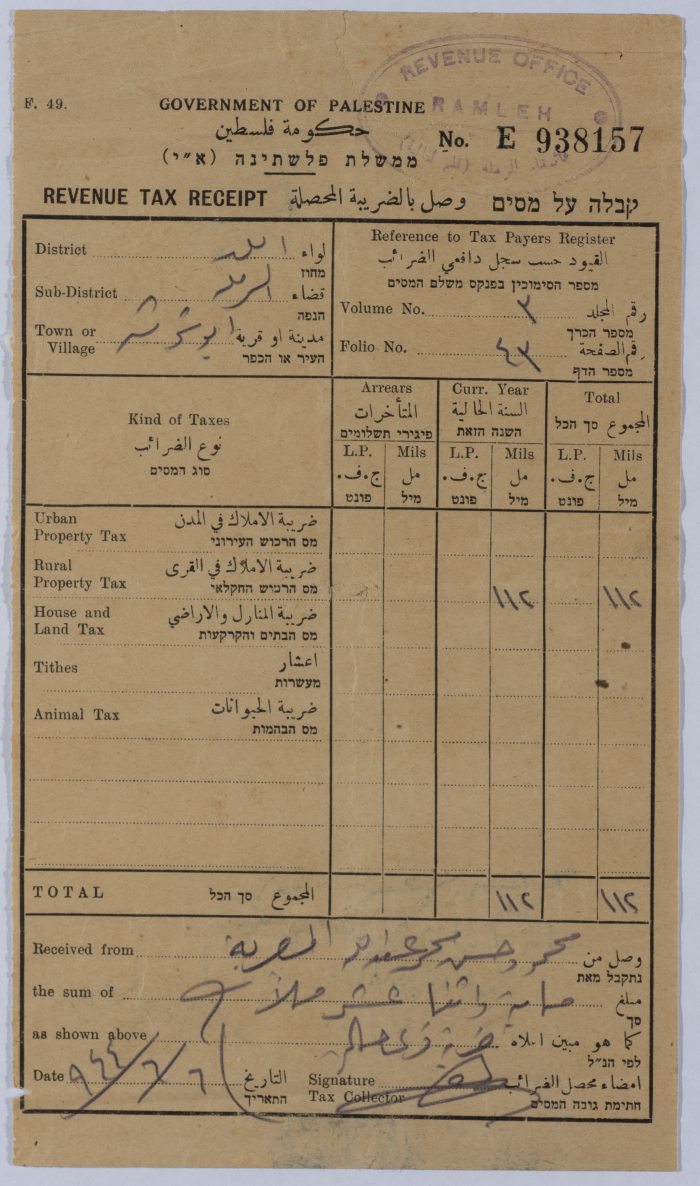 REVENUE OFFICE
RAMLEH
F. 49.
GOVERNMENT OF PALESTINE
حكومة فلسطين
ממשלת פלשתינה (א״י)
No. E 938157
REVENUE TAX RECEIPT وصل بالضريبة المحصلة קבלה על מסים
District اللد لواء
מחוז
Sub-District الرملة قضاء
הנפה
Town or Village ابو شوشة مدينة او قرية
העיר או הכפר
Reference to Tax Payers Register
القيود حسب سجل دافعي الضرائب
מספר הסימוכין בפנקס משלם המסים
Volume No. ٣ رقم المجلد
מספר הכרך
Folio No. ٤٣ رقم الصفحة
מספר הדף
Kind of Taxes
نوع الضرائب
סוג המסים
Arrears
المتأخرات
פיגורי תשלומים
Curr. Year
السنة الحالية
השנה הזאת
Total
المجموع סך הכל
L.P. Mils L.P. Mils L.P. Mils
ج.ف. مل ج.ف. مل ج.ف. مل
פונט מיל פונט מיל פונט מיל
Urban Property Tax ضريبة الاملاك في المدن
מס הרכוש העירוני
Rural Property Tax ضريبة الاملاك في القرى
מס הרכוש החקלאי
١١٢ ١١٢
House and Land Tax ضريبة المنازل والاراضي
מס הבתים והקרקעות
Tithes اعشار
מעשרות
Animal Tax ضريبة الحيوانات
מס הבהמות
TOTAL סך הכל المجموع
١١٢ ١١٢
Received from محمود حسن محمد عبدالله وصل من
נתקבל מאת
the sum of ماية واثنا عشر ملا مبلغ
סך
as shown above كما هو مبين اعلاه
לפי הנ״ל
Date ٦/٦/٩٤٤ التاريخ
התאריך
Signature Tax Collector امضاء محصل الضرائب
חתימת גובה המסים